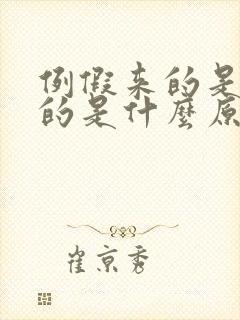 例假来的是
的是什麼原
崔京秀